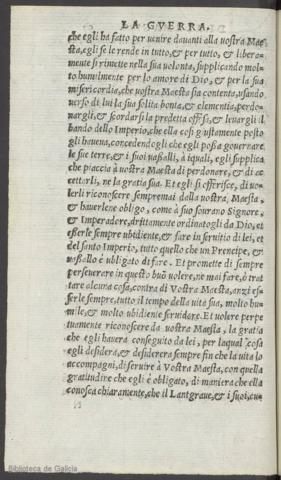 LA GVERRA.
che egli ha fatto per venire dauanti alla uostra Mae
sta, egli se le rende in tutto, & per tutto, & libera-
mente si rimette nella sua uolonta, supplicando mol-
to humilmente per lo amore di Dio, & per la sua
misericordia, che uostra Maesta sia contenta, usando
uerso di lui la sua solita bonta, & clementia, perdo-
nargli, & scordarsi la predetta offesa, & leuargli il
bando dello Imperio, che ella cosi giustamente posto
gli haueua, concedendogli che egli possa gouernare
le sue terre, & i suoi uassalli, à iquali, egli supplica
che piaccia à uostra Maestà di perdonare, & di ac
cettarli, ne la gratia sua. Et egli si offerisce, di uo-
lerli riconoscere sempre mai dalla uostra, Maesta,
& hauerlene obligo, come à suo sourano Signore,
& Imperadore, drittamente ordinatogli da Dio, et
esserle sempre ubidiente, & fare in seruitio di lei, et
del santo Imperio, tutto quello che un Prencipe, &
uassallo è ubligato di fare. Et promette di sempre
perseuerare in questo buõ uolere, ne mai fare, ò trat
tare alcuna cosa, contra di Vostra Maestà, anzi es-
ser le sempre, tutto il tempo della uita sua, molto hu-
mile, & molto ubidiente seruidore. Et uolere perpe
tuamente riconoscere da uostra Maesta, la gratia
che egli hauera conseguito da lei, per laqual cosa
egli desidera, & desiderera sempre fin che la uita lo
accompagni, di seruire à Vostra Maesta, con quella
gratitudine che egli è obligato, di maniera che ella
conosca chiaramente, che il Lantgraue, & i suoi, cue
Biblioteca de Galicia